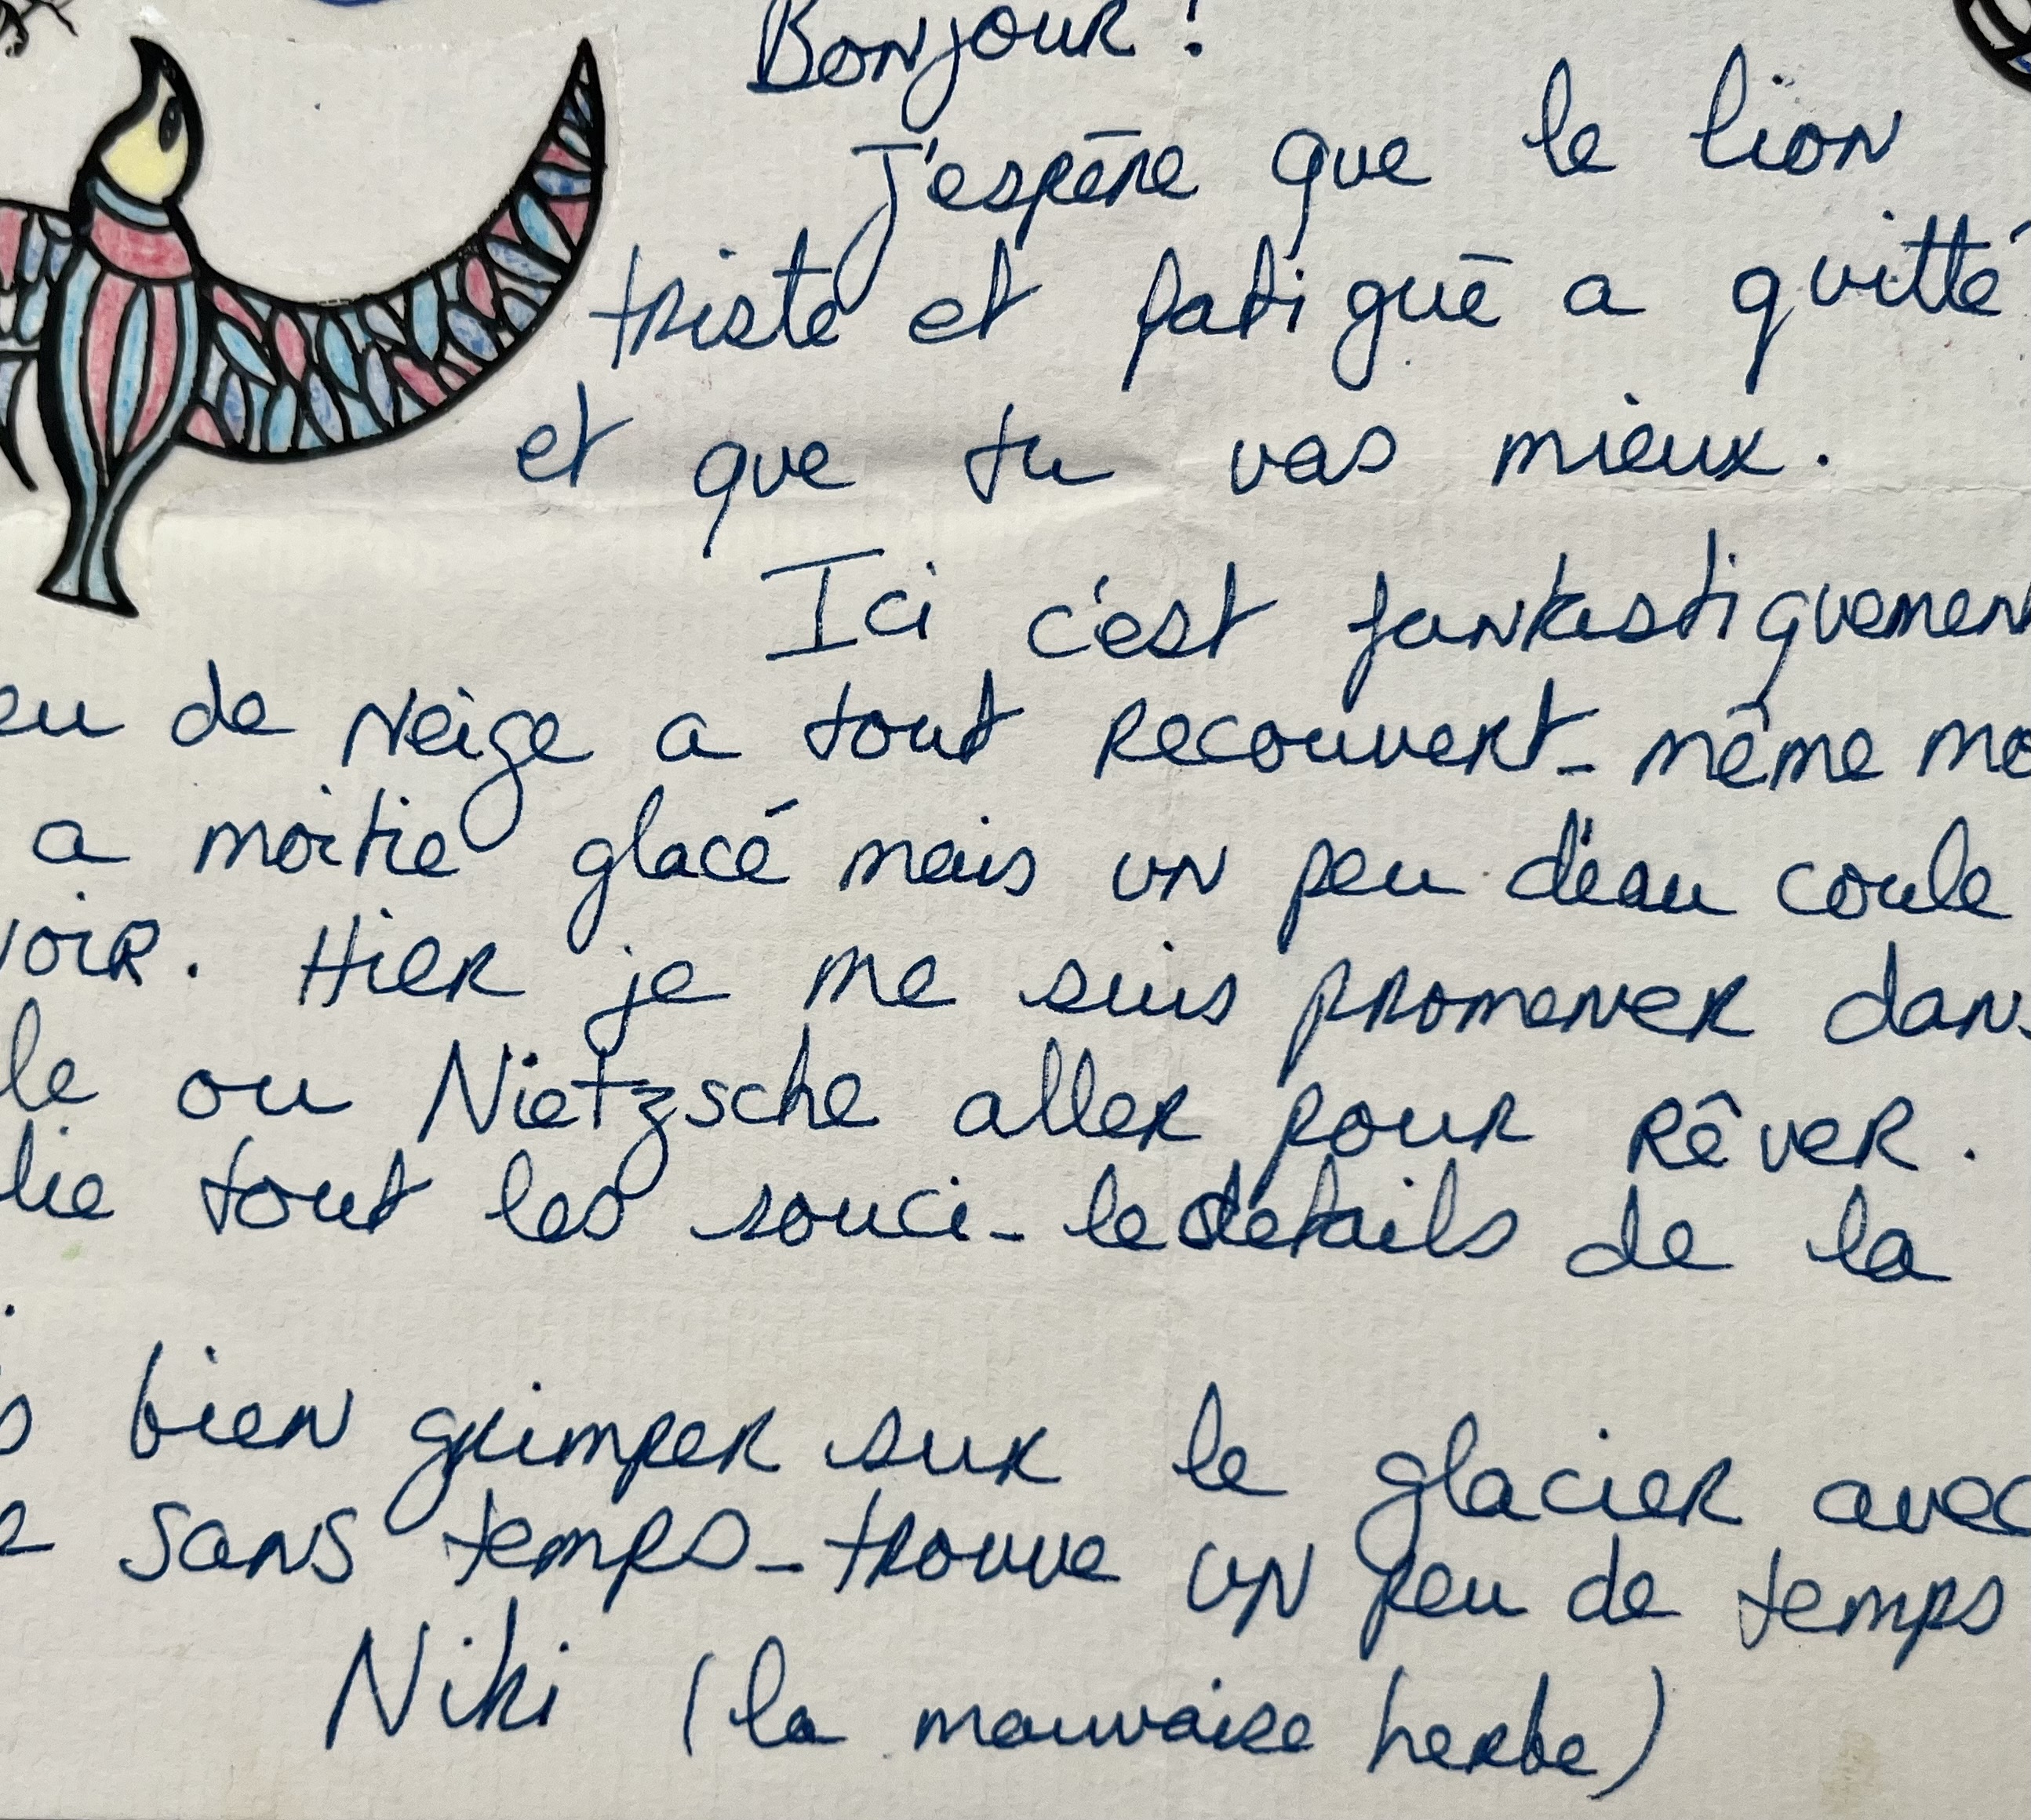 Bonjour !
J'espère que le lion
triste et fatigué a quitté
et que tu vas mieux.
Ici c'est fantastiquemen
eu de neige a tout recouvert - même mo
a moitie glacé mais un peu d'eau coule
voir. Hier je me suis promener dans
le ou Nietzsche aller pour rêver.
lie tout les souci - le details de la
s bien grimper sur le glacier avec
sans temps - trouve un peu de temps
Niki (la mauvaise herbe)